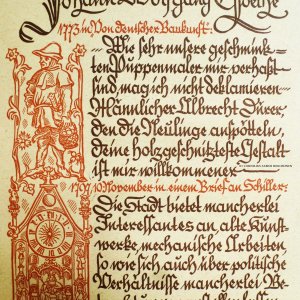 Johann Wolfgang Goethe
1773 in „Von deutscher Baukunst":
Wie sehr unsere geschmink=
ten Puppenmaler mir verhaßt
sind, mag ich nicht deklamieren
Männlicher Albrecht Dürer,
den die Neulinge anspötteln,
deine holzgeschnitzteste Gestalt
ist mir willkommener
1797, 10 November in einem Brief an Schiller:
Die Stadt bietet mancherlei
Interessantes an, alte Kunst=
werke, mechanische Arbeiten
so wie sich auch über politische
Verhältnisse mancherlei Be=